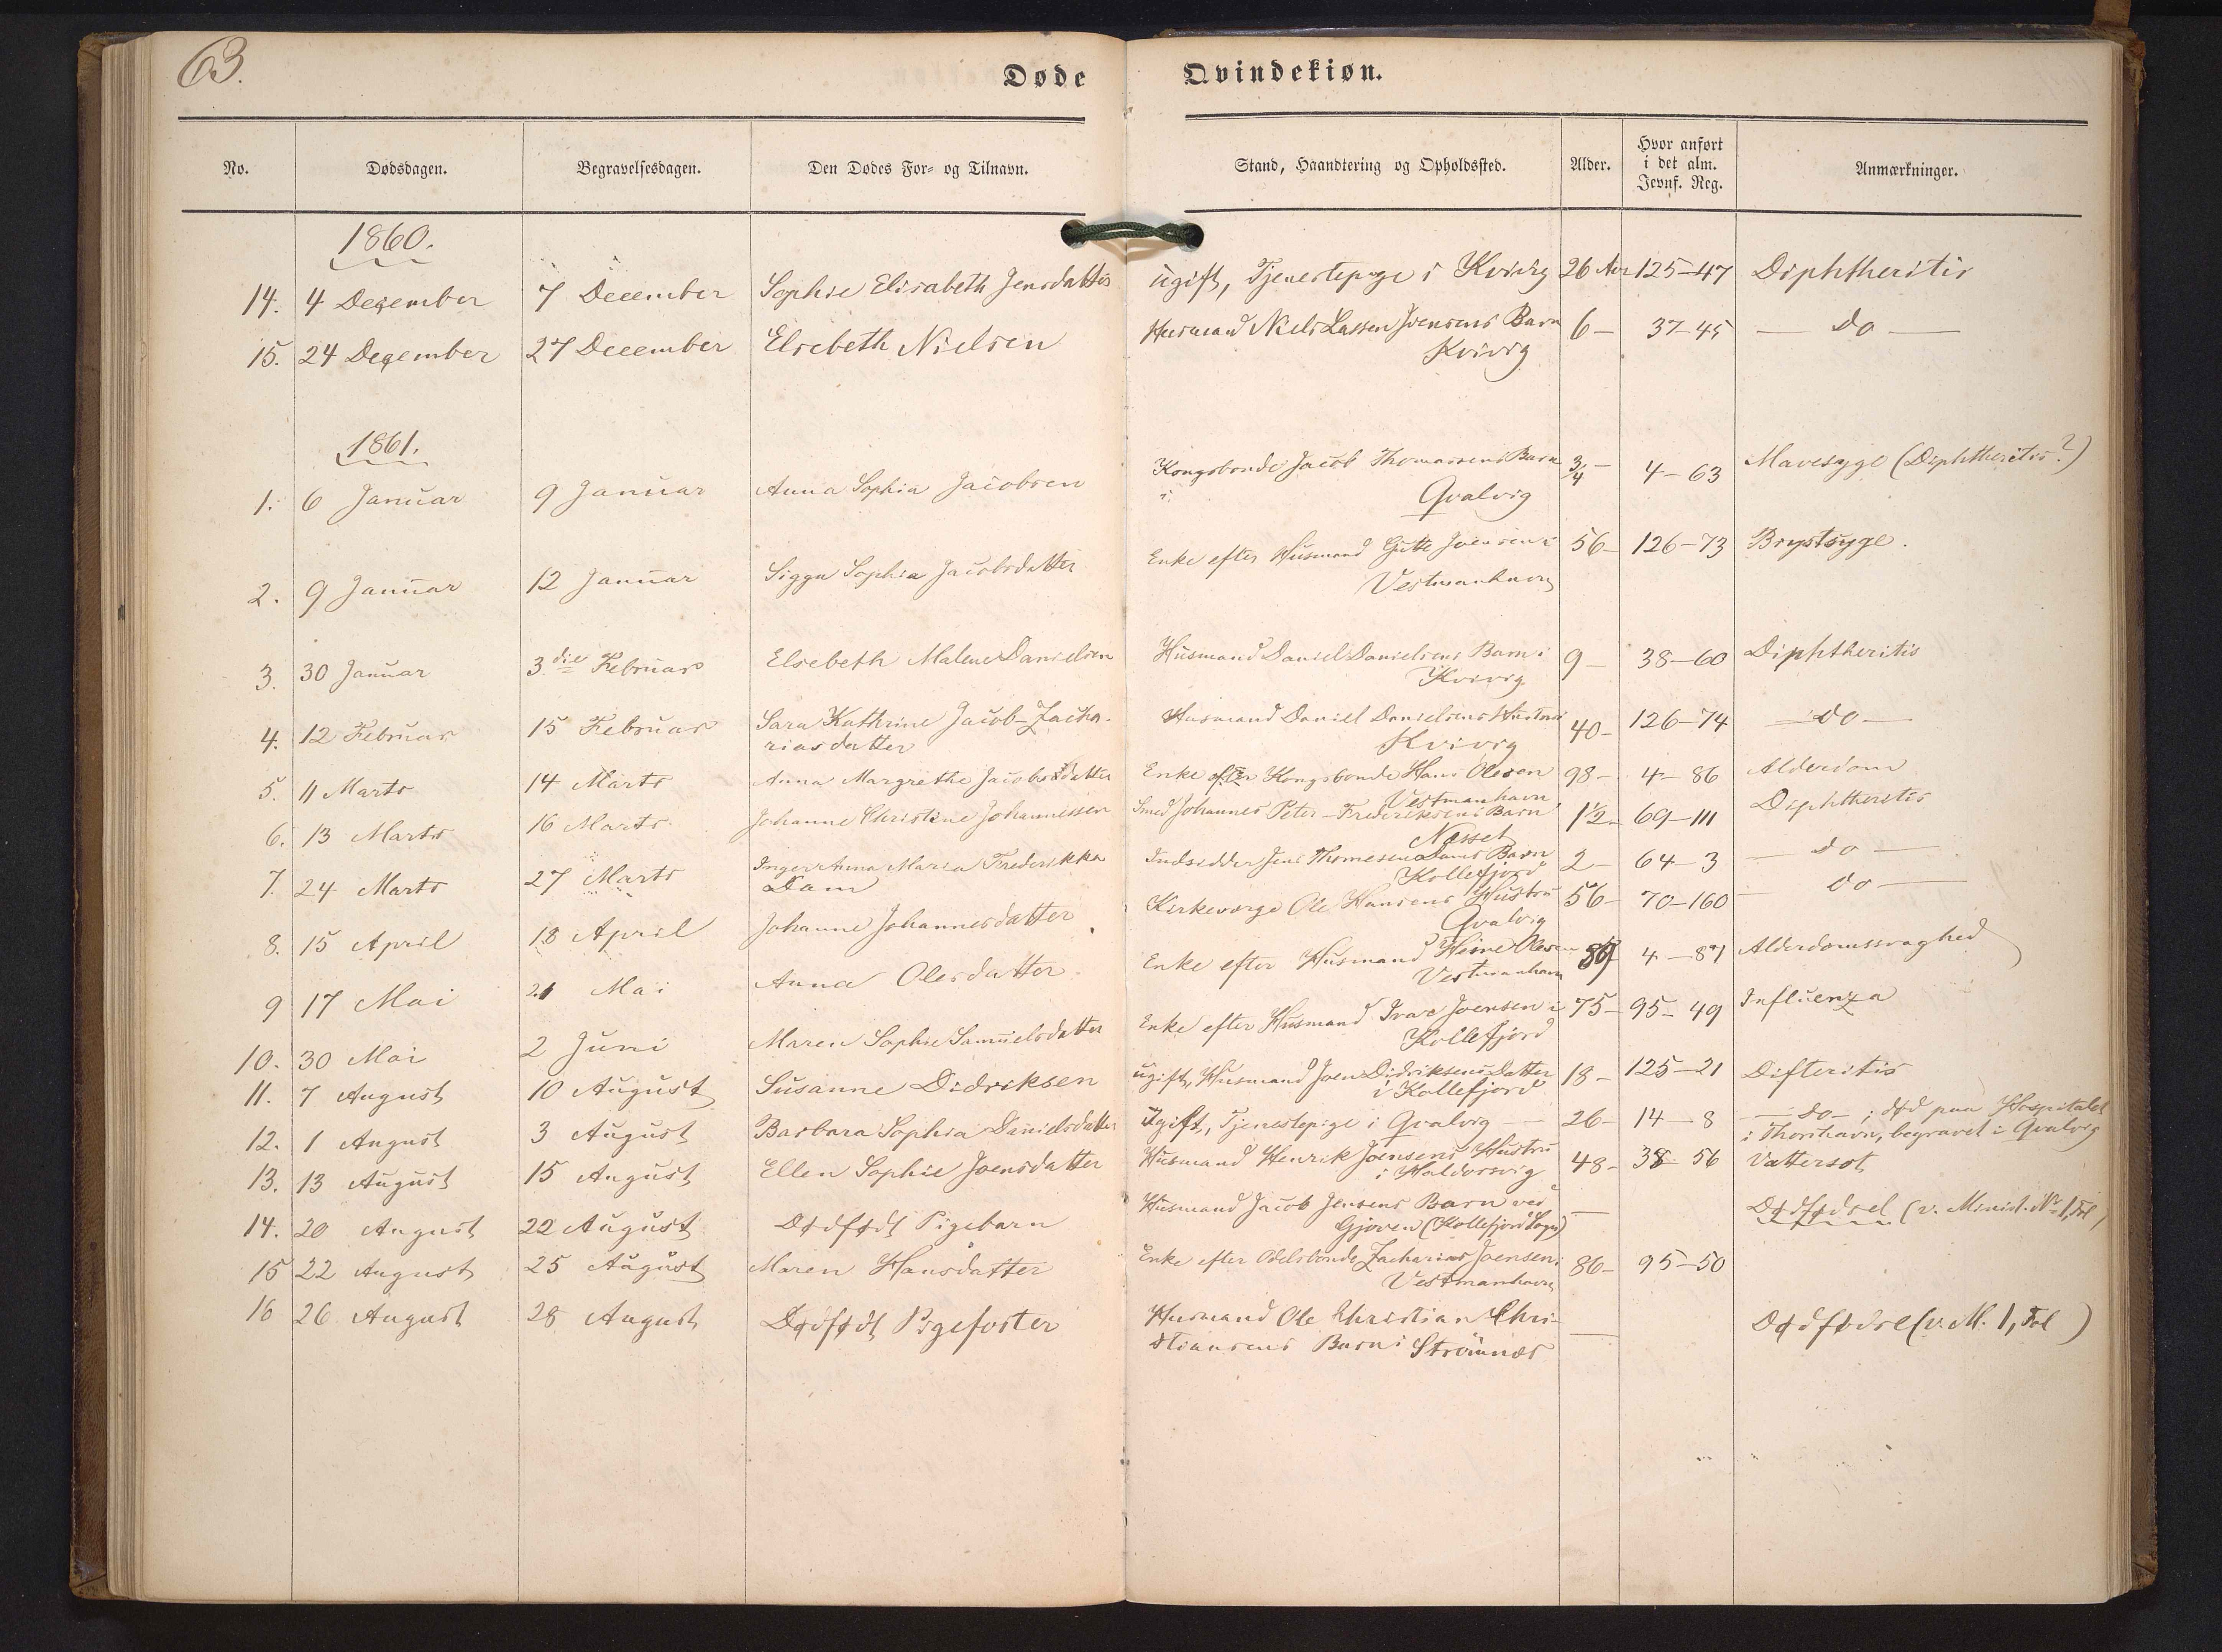 63.
Døde Qvindekiøn.
No. Dødsdagen. Begravelsesdagen. Den Dødes For- og Tilnavn. Stand, Haandtering og Opholdssted. Alder. Hvor anført i det alm. Jevnf. Reg. Anmærkninger.
1860.
14. 4 December 7 December Sophie Elisabeth Jensdatter ugift, Tjenestepige i Kvivig 26 Aar 125-47 Diphtheritis
15. 24 December 27 December Elsebeth Nielsen Husmand Niels Lassen Joensens Barn 6- 37-45 - do -
Kvivig
1861.
1. 6 Januar 9 Januar Anna Sophia Jacobsen Kongsbonde Jacob Thomassens Barn 3/4- 4-63 Mavesyge (Diphtheritis?)
i Qvalvig
2. 9 Januar 12 Januar Sigga Sophia Jacobsdatter Enke efter Husmand Gutte Joensen i 56- 126-73 Brystsyge.
Vestmanhavn
3. 30 Januar 3die Februar Elsebeth Malene Danielsen Husmand Daniel Danielsens Barn i 9- 38-60 Diphtheritis
Kvivig
4. 12 Februar 15 Februar Sara Kathrine Jacob-Zacha- Husmand Daniel Danielsens Hustru 40- 126-74 - do -
riasdatter Kvivig
5. 11 Marts 14 Marts Anna Margrethe Jacobsdatter Enke efter Kongsbonde Hans Olesen 98- 4-86 Alderdom
Vestmanhavn
6. 13 Marts 16 Marts Johanne Christine Johannessen Smed Johannes Peter-Frederiksens Barn 1 1/2- 69-111 Diphtheritis
Nesset
7. 24 Marts 27 Marts Inger Anna Maria Frederikka Indsidder Jens Thomesen Dams Barn 2- 64-3 - do -
Dam Kollefjord
8. 15 April 18 April Johanne Johannesdatter Kirkeværge Ole Hansens Hustru 56- 70-160 - do -
Qvalvig
9 17 Mai 21 Mai Anna Olesdatter Enke efter Husmand Heine Olesen 89 4-87 Alderdomssvaghed
Vestmanhavn
10. 30 Mai 2 Juni Maren Sophie Samuelsdatter Enke efter Husmand Ivar Joensen i 75- 95-49 Influenza
Kollefjord
11. 7 August 10 August Susanne Didriksen ugift, Husmand Joen Didriksens Datter 18- 125-21 Difteritis
i Kollefjord
12. 1 August 3 August Barbara Sophia Danielsdatter Ugift, Tjenestepige i Qvalvig - 26- 14-8 - do - ; død paa Hospitalet
i Thorshavn, begravet i Qvalvig
13. 13 August 15 August Ellen Sophie Joensdatter Husmand Henrik Joensens Hustru 48- 38-56 Vattersot
i Haldorsvig
14. 20 August 22 August Dødfødt Pigebarn Husmand Jacob Jensens Barn ved - Dødfødsel (v. Minist. No 1, Fol )
Gjoven (Kollefjord Sogn)
15 22 August 25 August Maren Hansdatter Enke efter Odelsbonde Zacharias Joensen i 86- 95-50
Vestmanhavn
16 26 August 28 August Dødfødt Pigefoster Husmand Ole Christian Chri- - Dødfødsel (v. M. 1, Fol )
stiansens Barn i Strømnæs